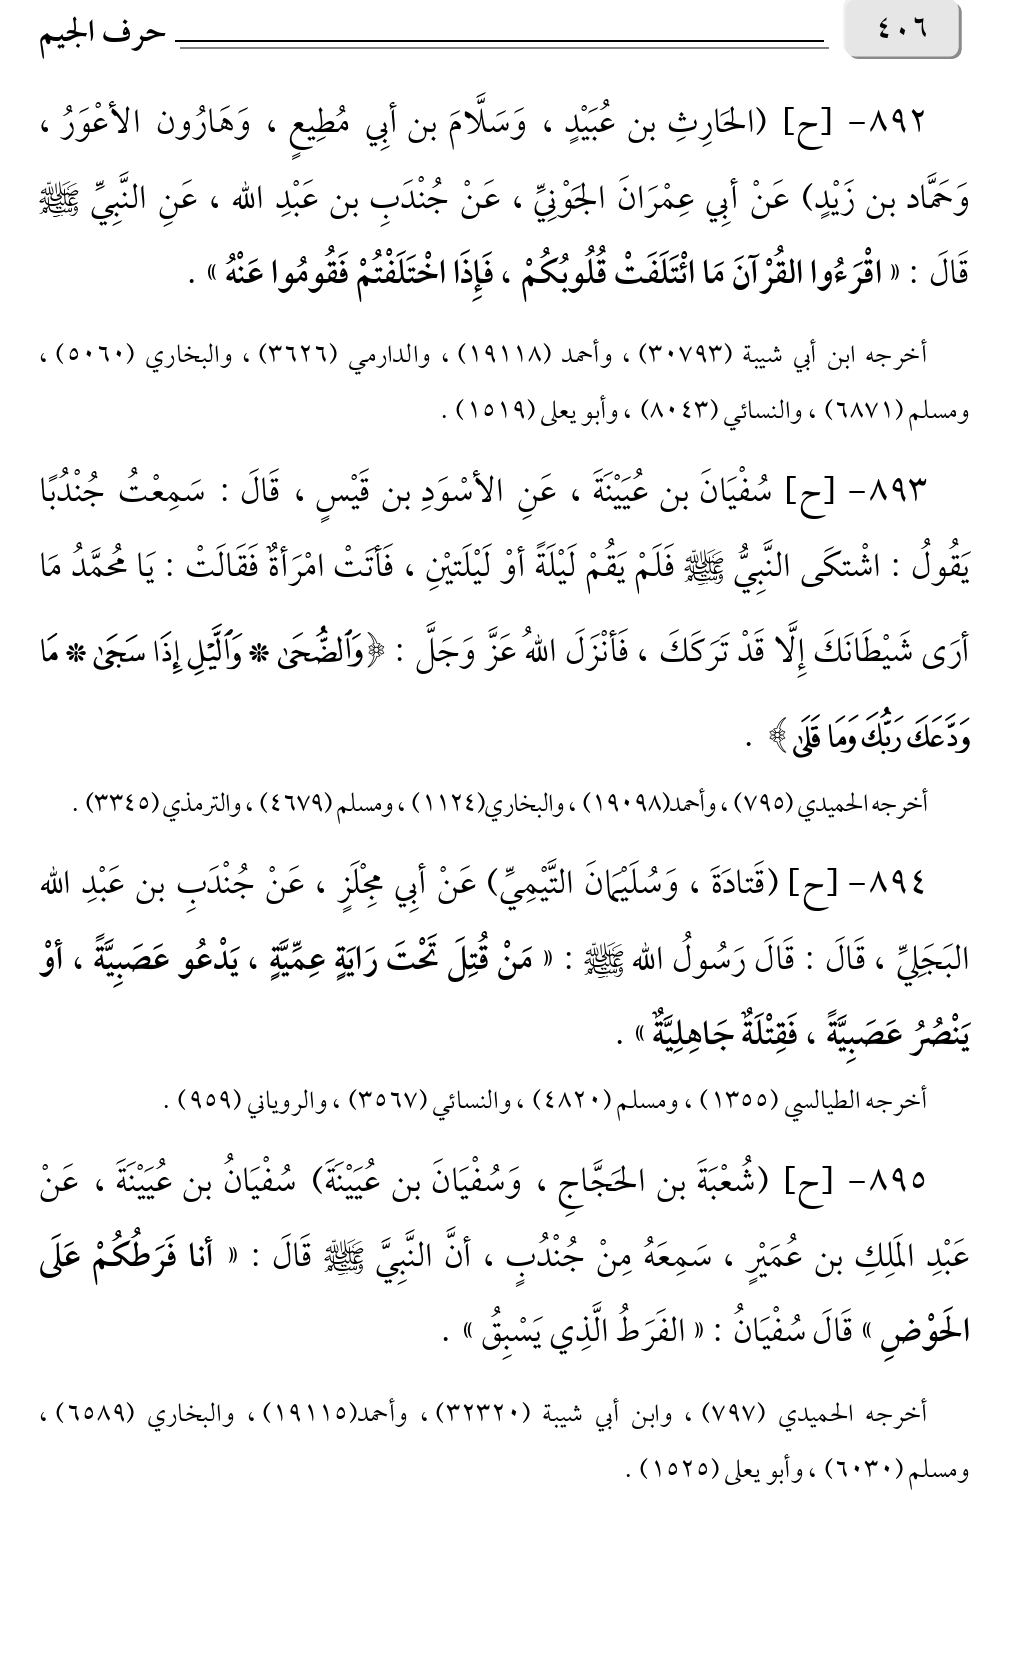 ٤٠٦
حرف الجيم
٨٩٢- [ح] (الحَارِثِ بن عُبَيْدٍ ، وَسَلَّامَ بن أبِي مُطِيعٍ ، وَهَارُون الأعْوَرُ ،
وَحَمَّاد بن زَيْدٍ) عَنْ أبِي عِمْرَانَ الجَوْنِيِّ ، عَنْ جُنْدَبِ بن عَبْدِ الله ، عَنِ النَّبِيِّ ﷺ
قَالَ : « اقْرَءُوا القُرْآنَ مَا ائْتَلَفَتْ قُلُوبُكُمْ ، فَإِذَا اخْتَلَفْتُمْ فَقُومُوا عَنْهُ » .
أخرجه ابن أبي شيبة (٣٠٧٩٣) ، وأحمد (١٩١١٨) ، والدارمي (٣٦٢٦) ، والبخاري (٥٠٦٠) ،
ومسلم (٦٨٧١) ، والنسائي (٨٠٤٣) ، وأبو يعلى (١٥١٩) .
٨٩٣- [ح] سُفْيَانَ بن عُيَيْنَةَ ، عَنِ الأسْوَدِ بن قَيْسٍ ، قَالَ : سَمِعْتُ جُنْدُبًا
يَقُولُ : اشْتكَى النَّبِيُّ ﷺ فَلَمْ يَقُمْ لَيْلَةً أوْ لَيْلَتيْنِ ، فَأتَتْ امْرَأةٌ فَقَالَتْ : يَا مُحمَّدُ مَا
أرَى شَيْطَانَكَ إِلَّا قَدْ تَرَكَكَ ، فَأنْزَلَ اللهُ عَزَّ وَجَلَّ : ﴿وَٱلضُّحَىٰ * وَٱلَّيْلِ إِذَا سَجَىٰ * مَا
وَدَّعَكَ رَبُّكَ وَمَا قَلَىٰ﴾ .
أخرجه الحميدي (٧٩٥) ، وأحمد(١٩٠٩٨) ، والبخاري(١١٢٤) ، ومسلم (٤٦٧٩) ، والترمذي (٣٣٤٥) .
٨٩٤- [ح] (قَتادَةَ ، وَسُلَيْمَانَ التَّيْمِيِّ) عَنْ أبِي مِجْلَزٍ ، عَنْ جُنْدَبِ بن عَبْدِ الله
البَجَلِيِّ ، قَالَ : قَالَ رَسُولُ الله ﷺ : « مَنْ قُتِلَ تَحْتَ رَايَةٍ عِمِّيَّةٍ ، يَدْعُو عَصَبِيَّةً ، أوْ
يَنْصُرُ عَصَبِيَّةً ، فَقِتْلَةٌ جَاهِلِيَّةٌ » .
أخرجه الطيالسي (١٣٥٥) ، ومسلم (٤٨٢٠) ، والنسائي (٣٥٦٧) ، والروياني (٩٥٩) .
٨٩٥- [ح] (شُعْبَةَ بن الحَجَّاجِ ، وَسُفْيَانَ بن عُيَيْنَةَ) سُفْيَانُ بن عُيَيْنَةَ ، عَنْ
عَبْدِ المَلِكِ بن عُمَيْرٍ ، سَمِعَهُ مِنْ جُنْدُبٍ ، أنَّ النَّبِيَّ ﷺ قَالَ : « أنا فَرَطُكُمْ عَلَى
الحَوْضِ » قَالَ سُفْيَانُ : « الفَرَطُ الَّذِي يَسْبِقُ » .
أخرجه الحميدي (٧٩٧) ، وابن أبي شيبة (٣٢٣٢٠) ، وأحمد(١٩١١٥) ، والبخاري (٦٥٨٩) ،
ومسلم (٦٠٣٠) ، وأبو يعلى (١٥٢٥) .